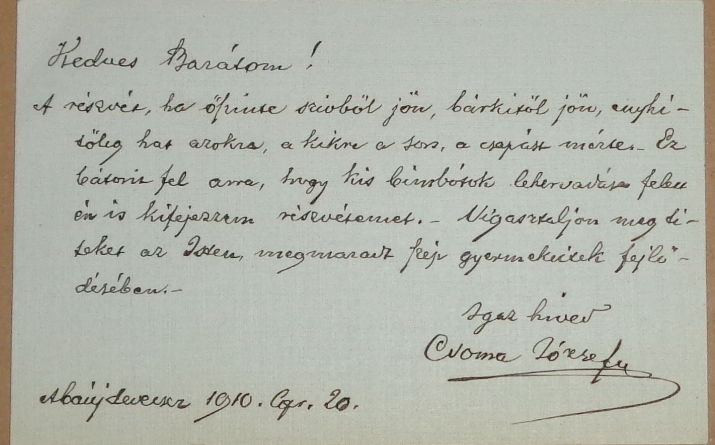 Kedves Barátom!
A részvét, ha őszinte szivből jön, bárkitől jön, enyhi-
tőleg hat azokra, a kikre a sors, a csapást mérte. - Ez
bátorit fel arra, hogy kis bimbótok lehervadása felett
én is kifejezzem részvétemet. - Vigasztaljon meg ti-
teket az Isten, megmaradt szép gyermekeitek fejlő-
désében. -
Igaz hived
Csoma József
Abaújdevecser 1910. 20.